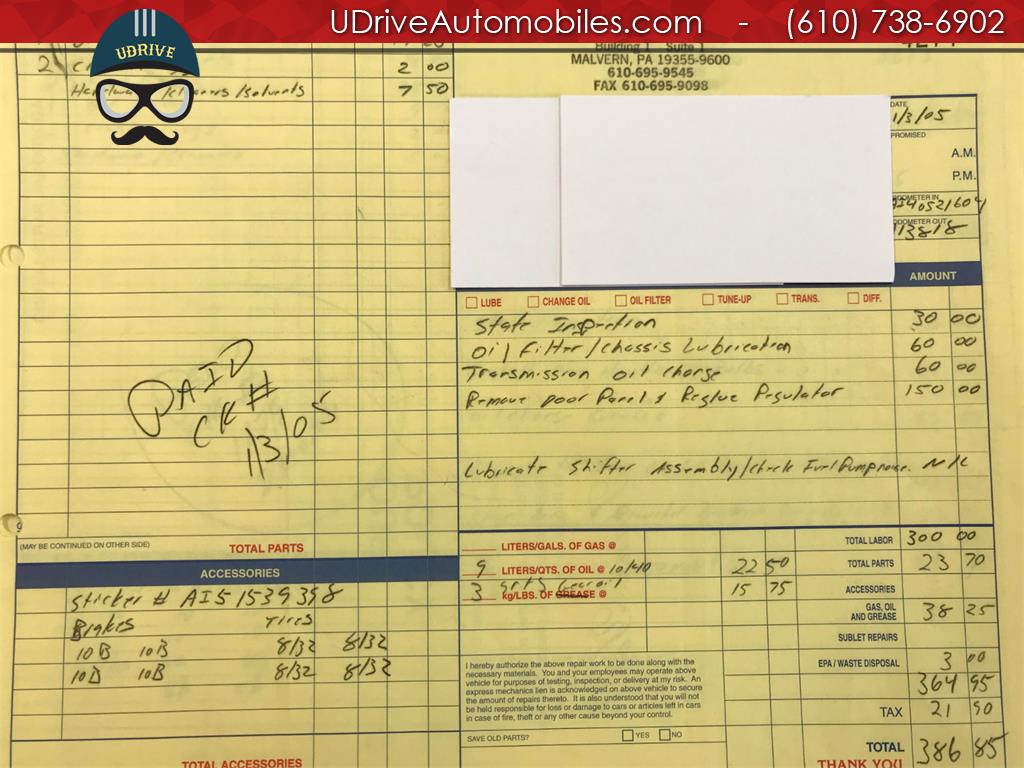 UDriveAutomobiles.com - (610) 738-6902
UDRIVE
Building 1 Suite 1
MALVERN, PA 19355-9600
610-695-9545
FAX 610-695-9098
2 2 00
/Solvents 7 50
DATE
1/3/05
PROMISED
A.M.
P.M.
ODOMETER IN
ODOMETER OUT
113818
AMOUNT
LUBE CHANGE OIL OIL FILTER TUNE-UP TRANS. DIFF.
State Inspection 30 00
Oil Filter/Chassis Lubrication 60 00
Transmission oil change 60 00
Remove Door Panel & Reglue Regulator 150 00
PAID
CK #
1/3/05
Lubricate Shifter Assembly/Check Fuel Pump noise. N/C
(MAY BE CONTINUED ON OTHER SIDE) TOTAL PARTS
LITERS/GALS. OF GAS @ TOTAL LABOR 300 00
9 LITERS/QTS. OF OIL @ 10/40 22 50 TOTAL PARTS 23 70
3 qrts Gear oil kg/LBS. OF GREASE @ 15 75 ACCESSORIES
GAS, OIL AND GREASE 38 25
SUBLET REPAIRS
EPA / WASTE DISPOSAL 3 00
364 95
TAX 21 90
TOTAL 386 85
THANK YOU
ACCESSORIES
Sticker # AI51539398
Brakes Tires
10B 10B 8/32 8/32
10D 10B 8/32 8/32
TOTAL ACCESSORIES
I hereby authorize the above repair work to be done along with the
necessary materials. You and your employees may operate above
vehicle for purposes of testing, inspection, or delivery at my risk. An
express mechanics lien is acknowledged on above vehicle to secure
the amount of repairs thereto. It is also understood that you will not
be held responsible for loss or damage to cars or articles left in cars
in case of fire, theft or any other cause beyond your control.
SAVE OLD PARTS? YES NO